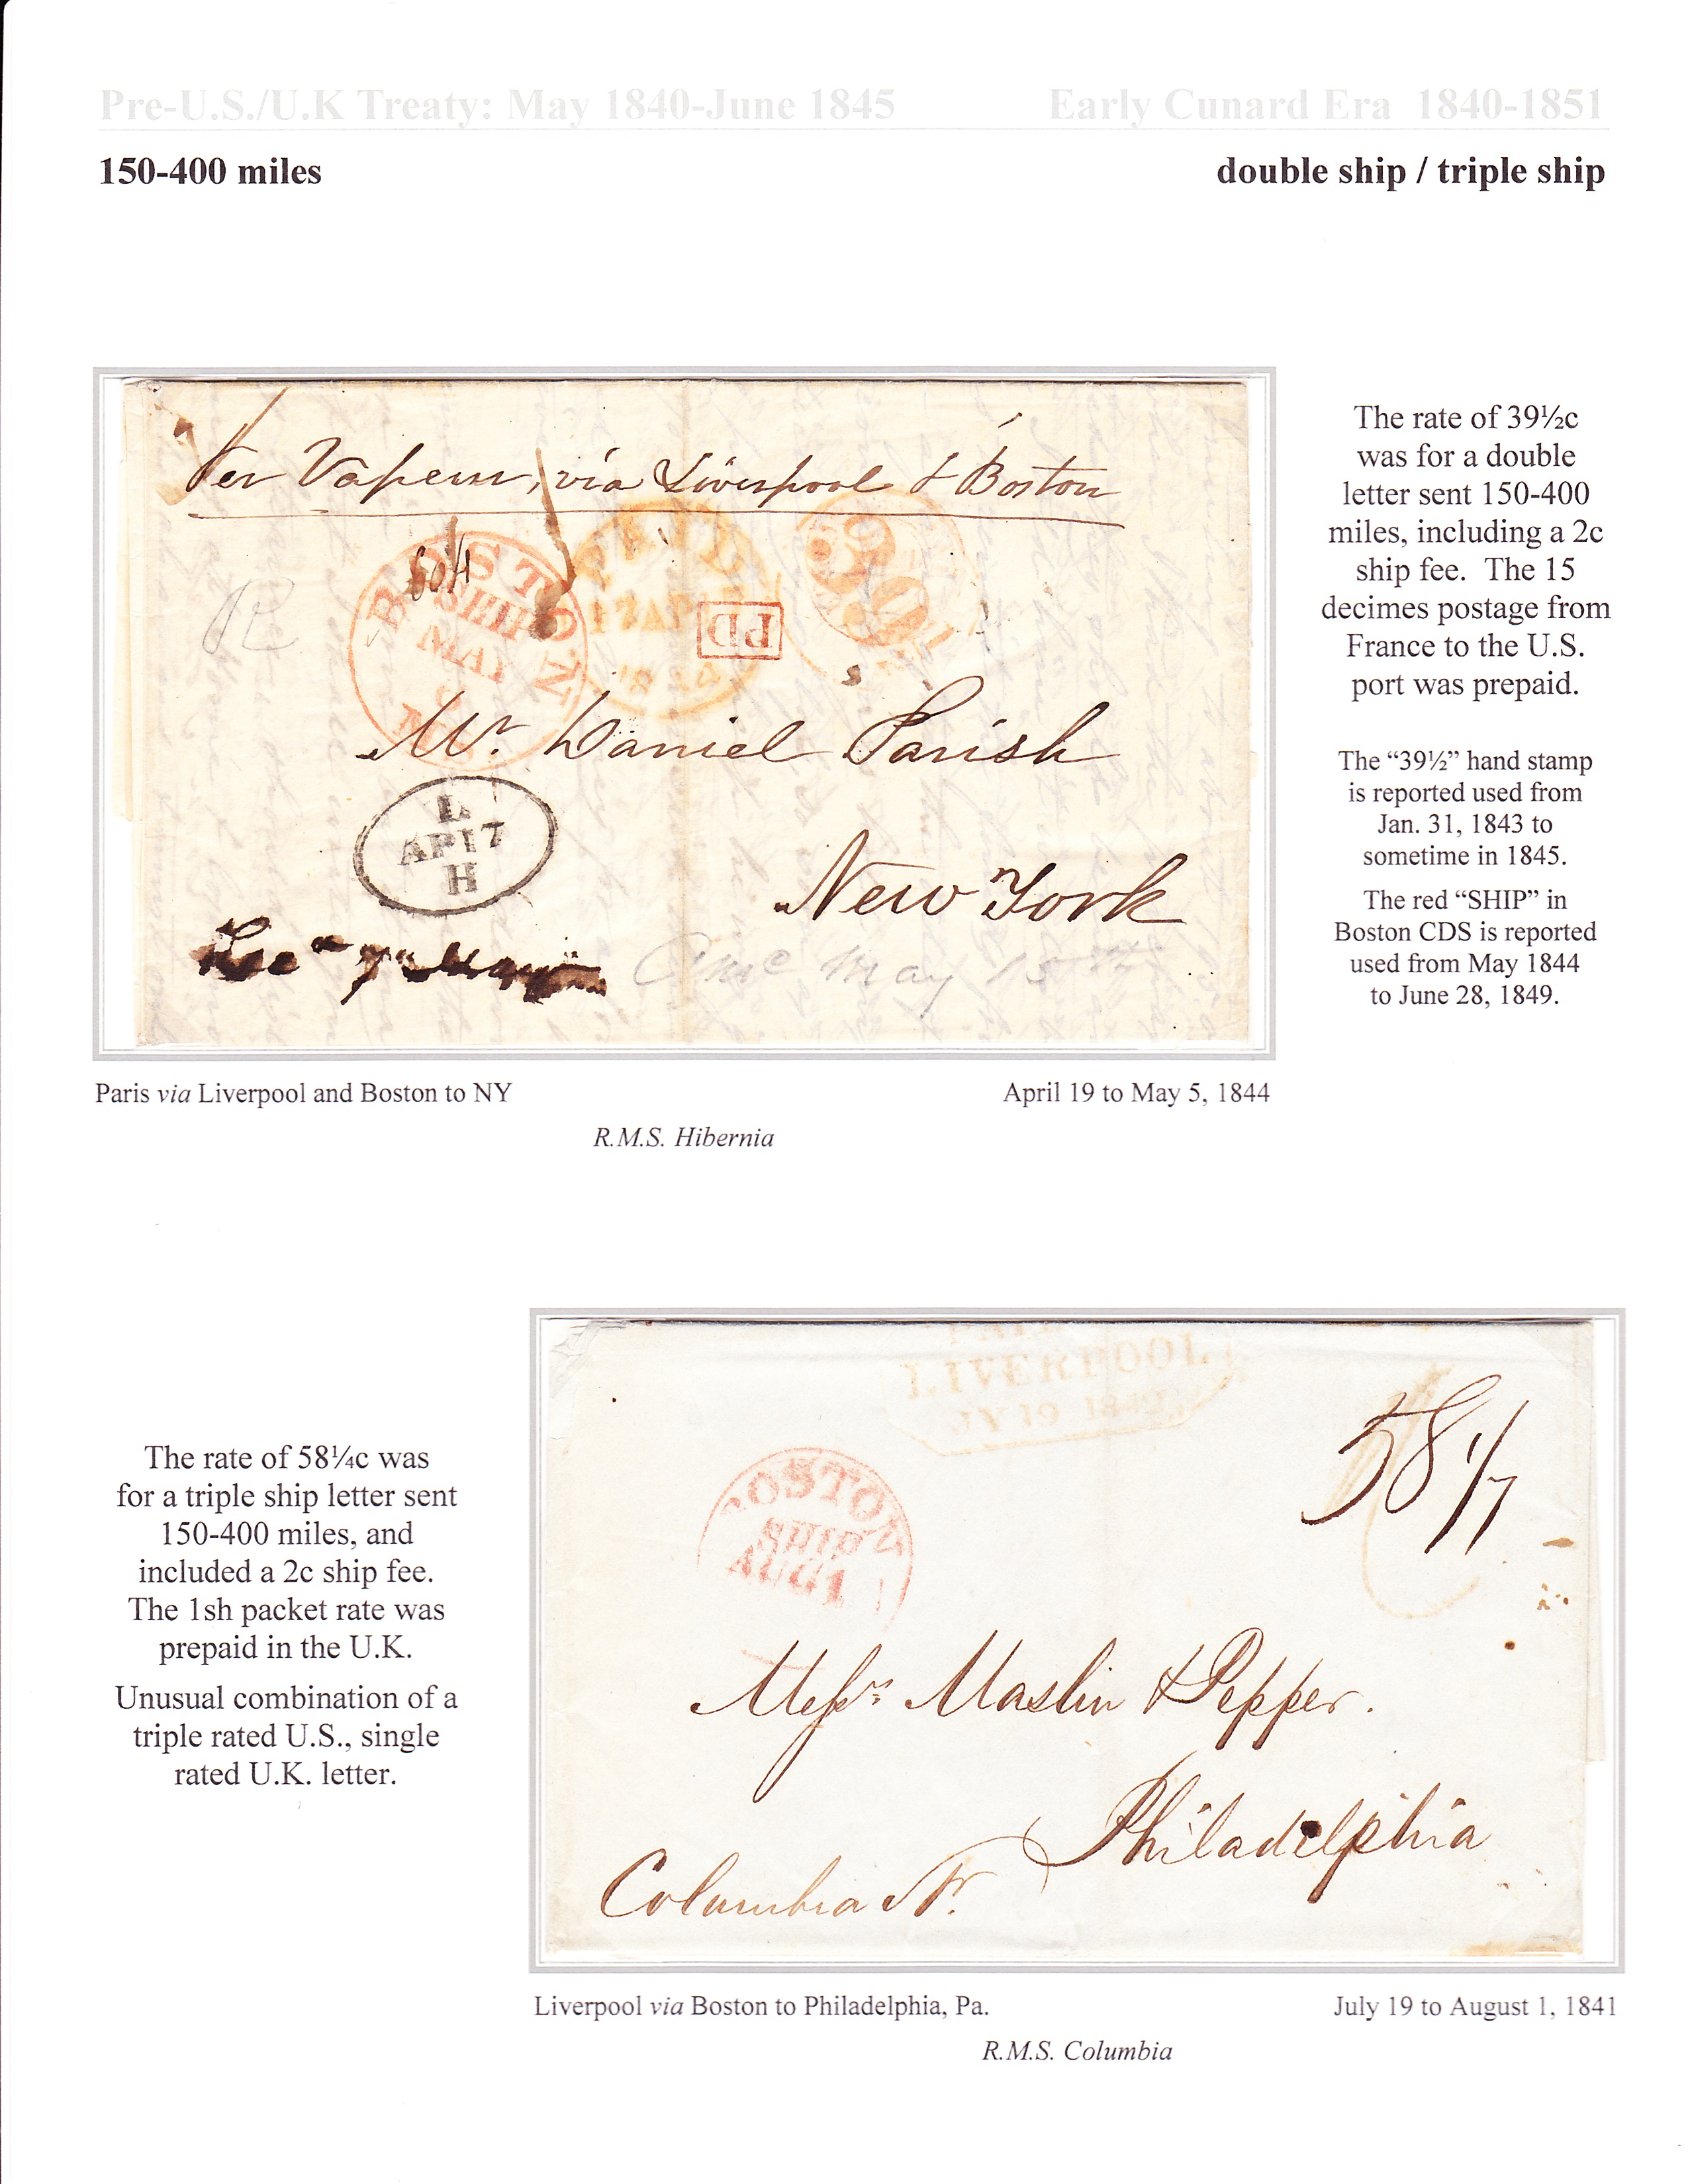 Pre-U.S./U.K Treaty: May 1840-June 1845
Early Cunard Era 1840-1851
150-400 miles
double ship / triple ship
Per Vapeur, via Liverpool & Boston
BOSTON
SHIP
MAY
PAID
17 AP
PD
Mr. Daniel Parish
L
AP 17
H
New York
May 15th
The rate of 39½c
was for a double
letter sent 150-400
miles, including a 2c
ship fee. The 15
decimes postage from
France to the U.S.
port was prepaid.
The “39½” hand stamp
is reported used from
Jan. 31, 1843 to
sometime in 1845.
The red “SHIP” in
Boston CDS is reported
used from May 1844
to June 28, 1849.
Paris via Liverpool and Boston to NY
April 19 to May 5, 1844
R.M.S. Hibernia
The rate of 58¼c was
for a triple ship letter sent
150-400 miles, and
included a 2c ship fee.
The 1sh packet rate was
prepaid in the U.K.
Unusual combination of a
triple rated U.S., single
rated U.K. letter.
LIVERPOOL
JY 19
BOSTON
SHIP
AUG 1
58
Messrs. Maslin & Pepper.
Philadelphia
Columbia
Liverpool via Boston to Philadelphia, Pa.
July 19 to August 1, 1841
R.M.S. Columbia